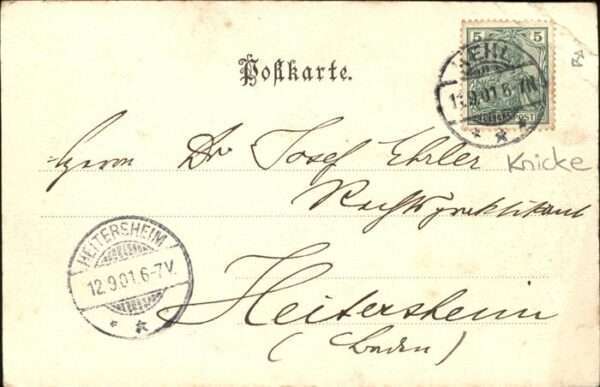 5 5
KEHL
11.9.01.6-7N.
REICHSPOST
Postkarte.
Herrn Dr Josef Ehrler
Knicke
Rechtspraktikant
HEITERSHEIM
12.9.01.6-7V.
Heitersheim
(Baden)